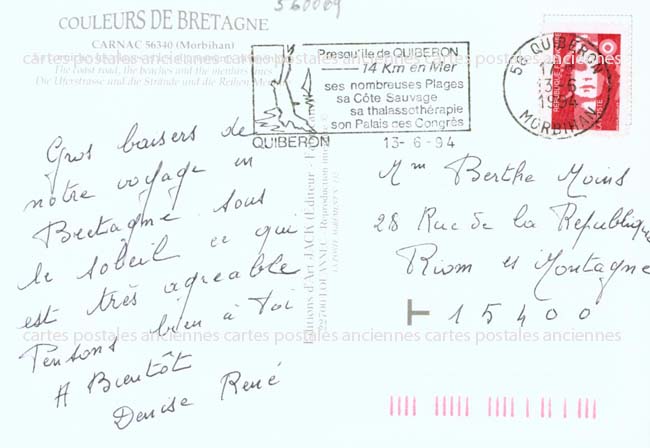 560069
COULEURS DE BRETAGNE
CARNAC 56340 (Morbihan)
The coast road, the beaches and the menhirs
Die Uferstrasse und die Strände und die Reihen
Gros baisers de
notre voyage en
Bretagne sous
le soleil ce qui
est très agréable
Pensons bien à toi
A Bientôt
Denise René
Editions d'Art JACK
Presqu'île de QUIBERON
14 Km en Mer
ses nombreuses Plages
sa Côte Sauvage
sa thalassothérapie
son Palais des Congrès
QUIBERON
13-6-94
56 QUIBERON
13-6
1994
MORBIHAN
Mme Berthe Moins
28 Rue de la République
Riom es Montagne
15400
cartes postales anciennes cartes postales anciennes cartes postales anciennes
cartes postales anciennes cartes postales anciennes cartes postales anciennes